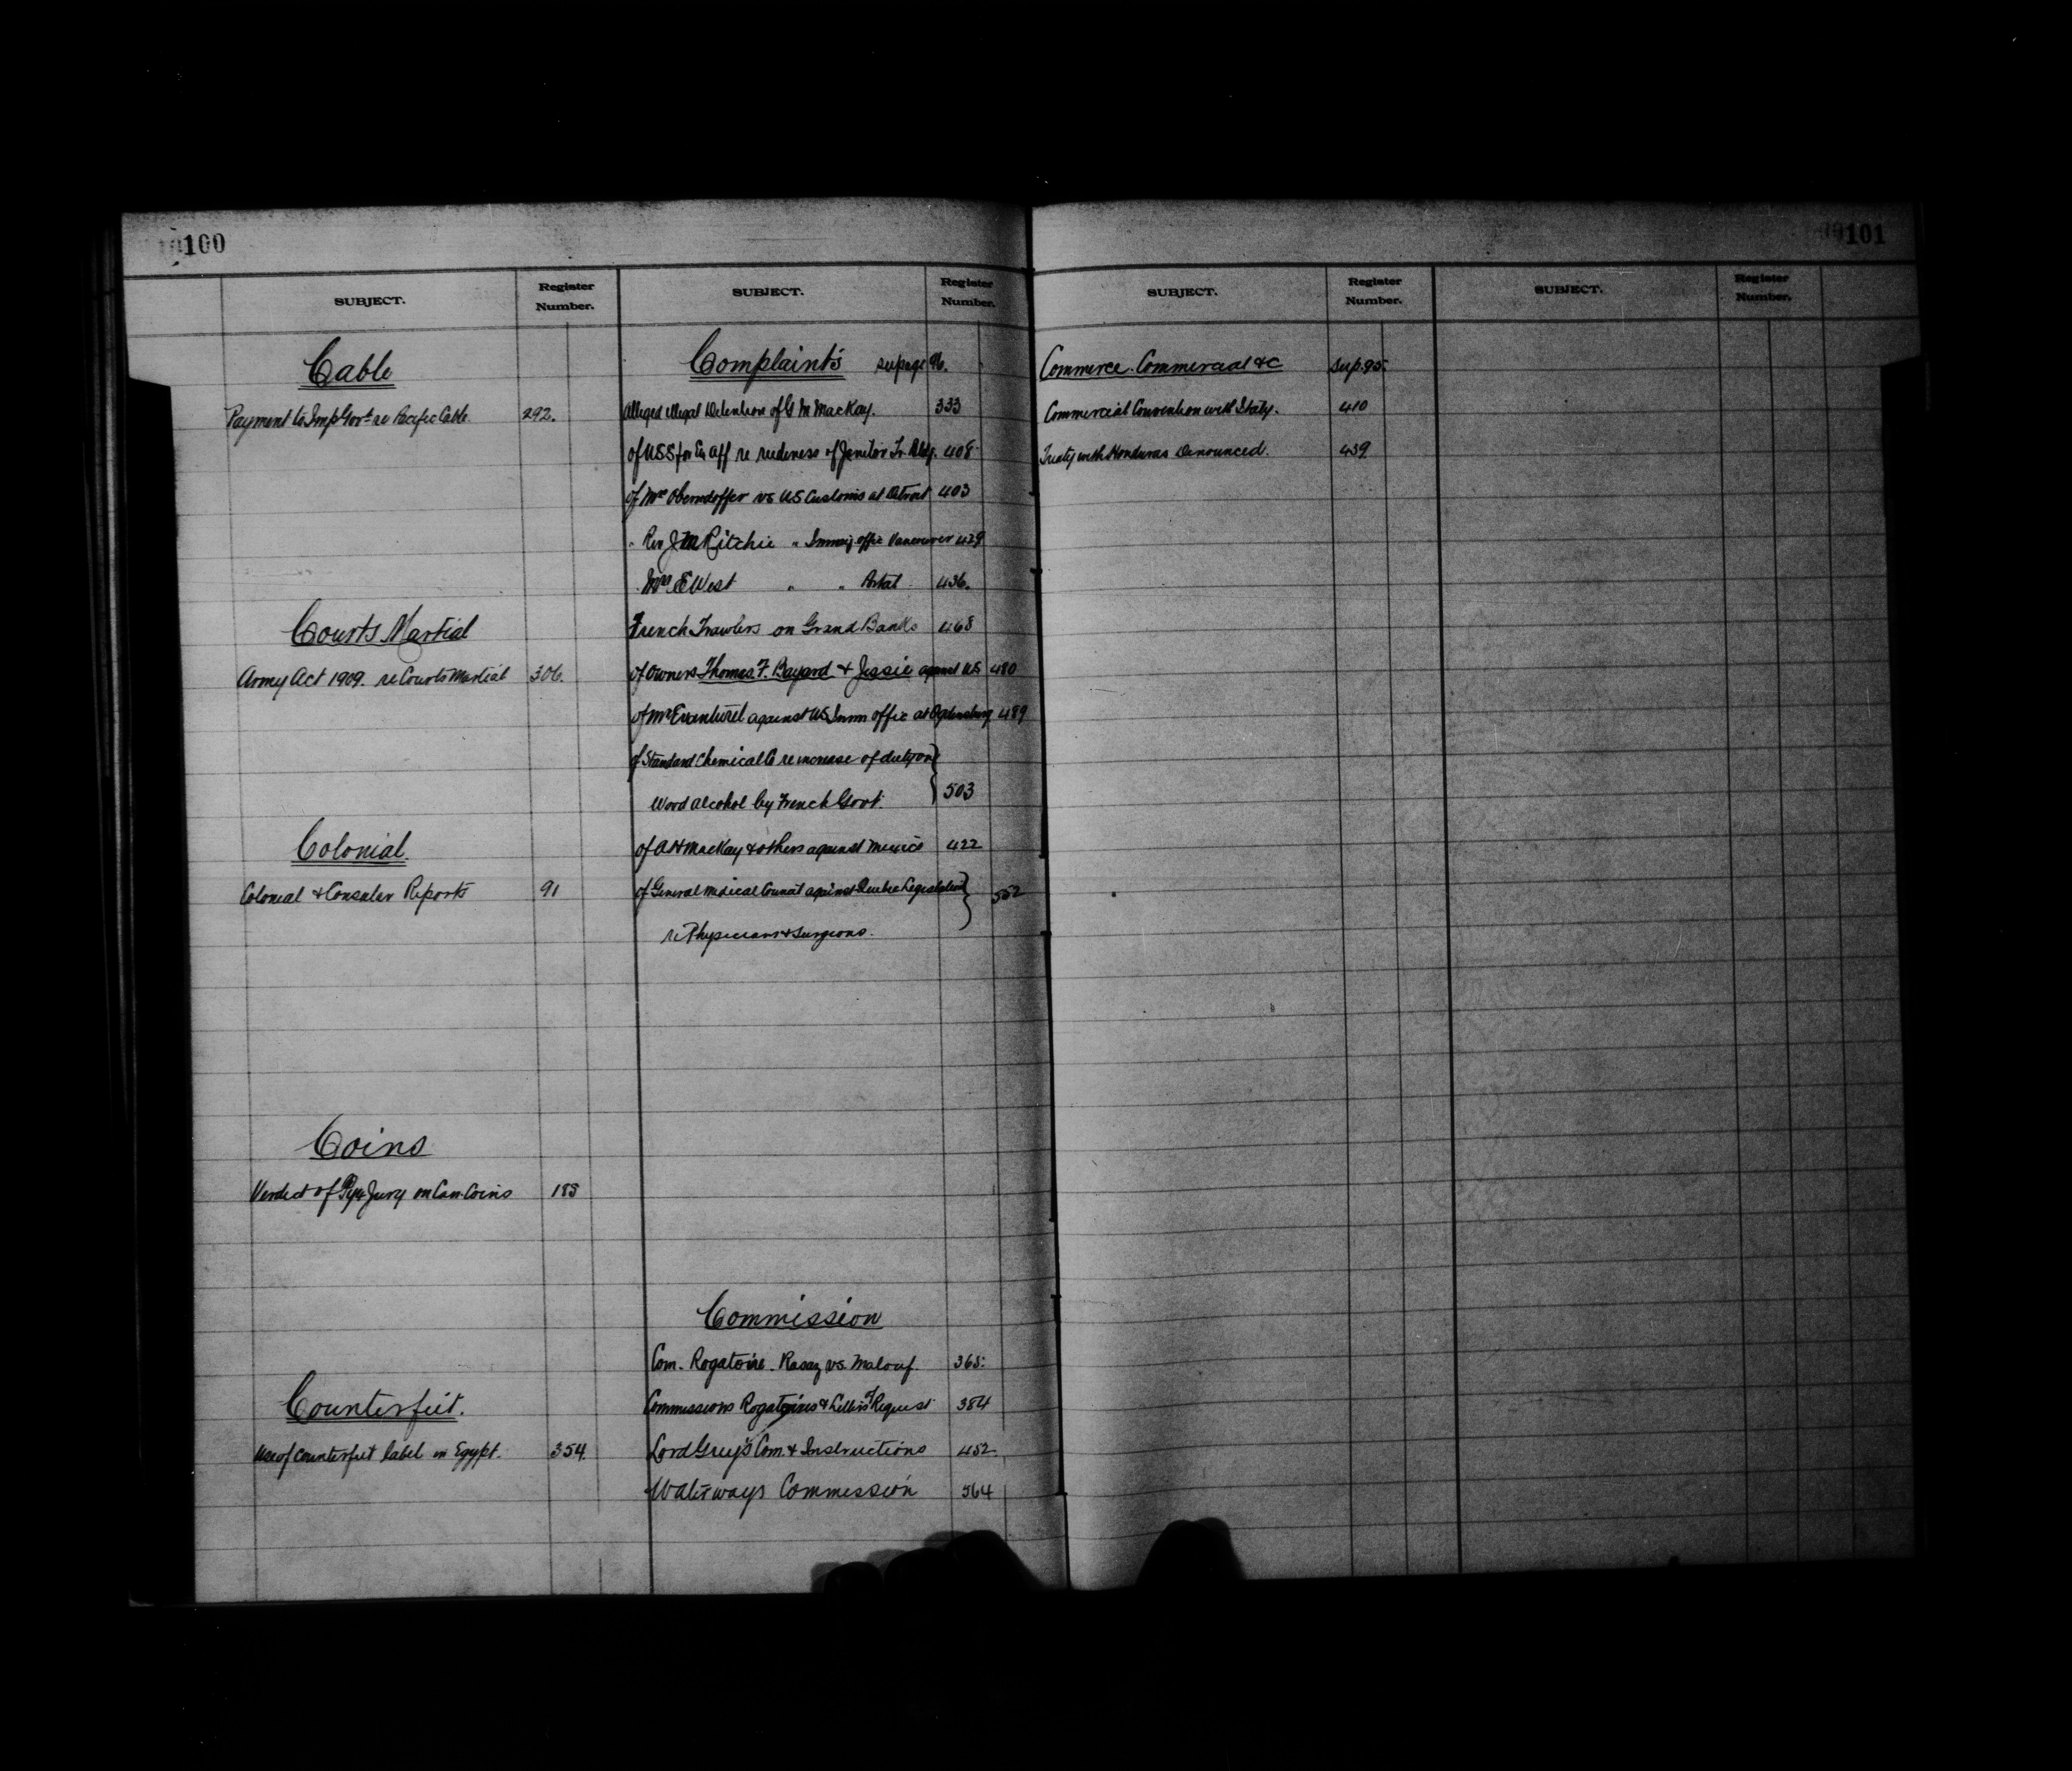 100
SUBJECT.
Register
Number.
Cable
Payment to Imp Govt re Pacific Cable. 292.
Courts Martial
Army Act 1909. re Courts Martial 306.
Colonial.
Colonial & Consular Reports 91
Coins
Verdict of Pyx Jury on Can. Coins 185
Counterfeit.
Use of counterfeit label in Egypt. 354.
SUBJECT.
Register
Number.
Complaints see page 96.
Alleged illegal Detention of G M MacKay. 333
of U S S for Ex Aff re rudeness of Janitor Tr. Bldg. 408
of Mr Oberndoffer vs US Customs at Detroit 403
" Rev J M Ritchie " Immig. offic Vancouver 429
" Mrs E West " " Portal 436.
French Trawlers on Grand Banks 468
of Owners Thomas F. Bayard & Jessie against US 480
of Mr Evanturel against US Imm offic at Ogdensburg 489
of Standard Chemical Co re increase of duty on
Wood alcohol by French Govt. 503
of A H MacKay & others against Mexico 422
of General Medical Council against Quebec Legislation
re Physicians & Surgeons. 552
Commission
Com. Rogatoire. Rasaz vs. Malouf. 365.
Commissions Rogatoires & Letters of Request 384
Lord Grey's Com. & Instructions 452
Waterways Commission 564
101
SUBJECT.
Register
Number.
Commerce. Commercial &c See p. 95.
Commercial Convention with Italy. 410
Treaty with Honduras Denounced. 439
SUBJECT.
Register
Number.